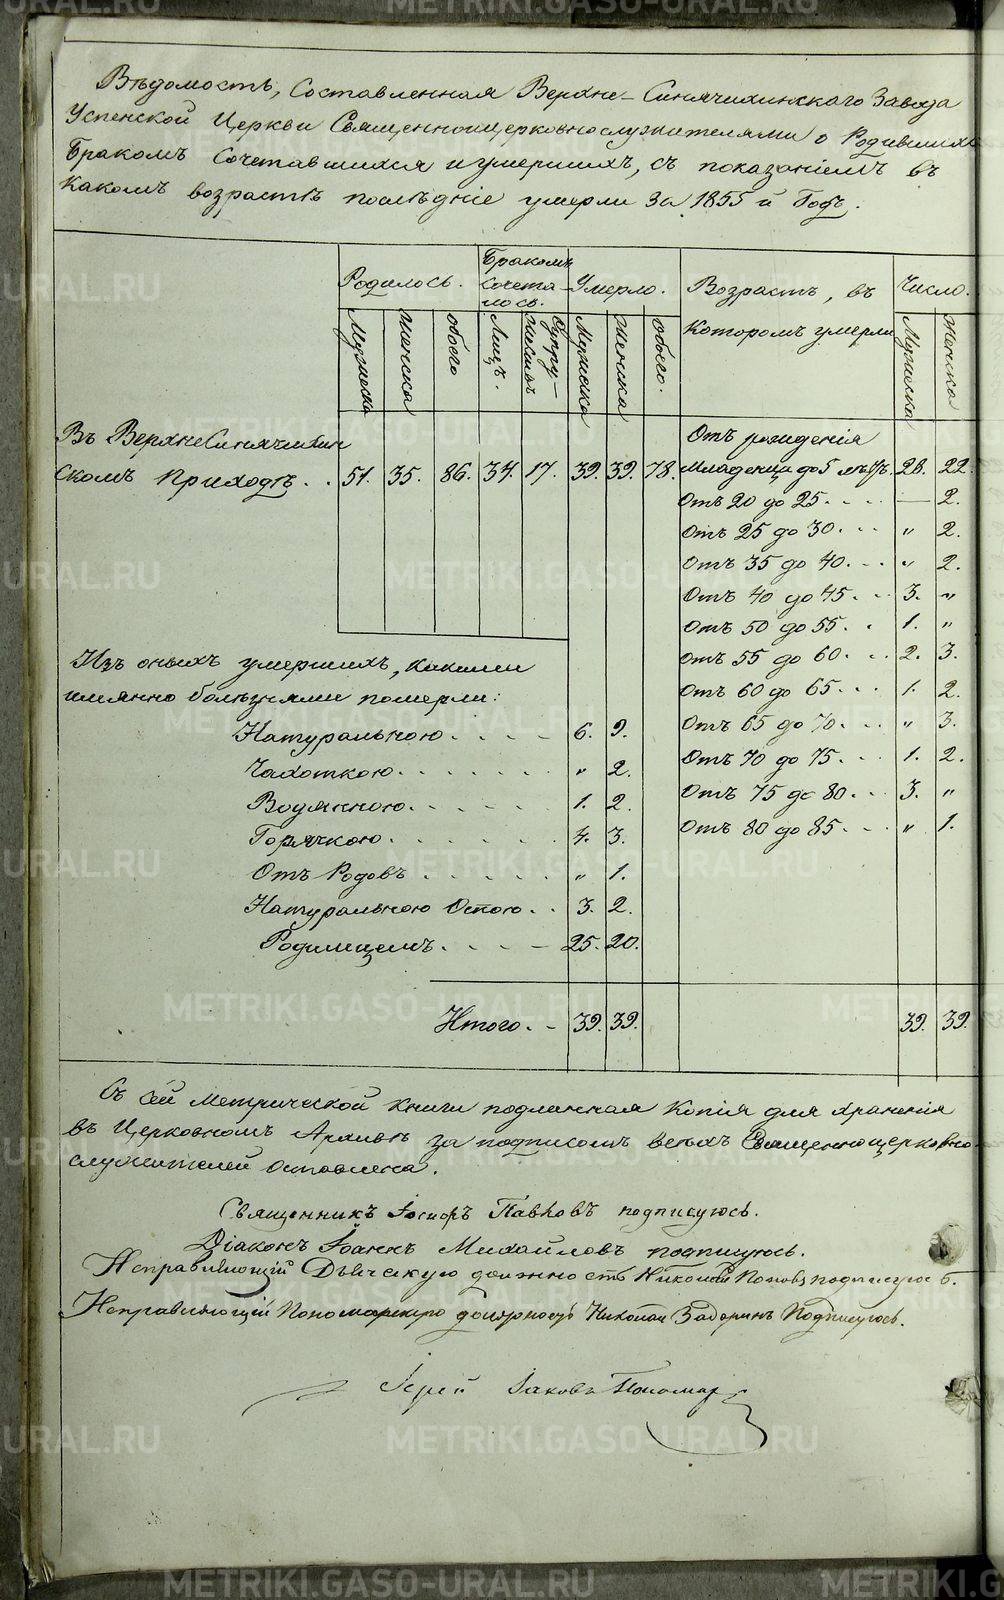 Вѣдомость, Составленная Верхне-Синячихинскаго Завода
Успенской Церкви Священноцерковнослужителями о Родившихся
Бракомъ Сочетавшихся и умершихъ, съ показаніемъ въ
Какомъ возрастѣ послѣдніе умерли За 1855 й Годъ.
Родилось. Бракомъ Сочета-лось. Умерло. Возрастъ, въ Которомъ умерли Число.
Мужеска Женска обоего Лицъ. Супру-жествъ Мужеска Женска Обоего. Мужеска Женска
Въ ВерхнеСинячихин Отъ рожденія
Скомъ Приходѣ. . 51. 35. 86. 34. 17. 39. 39. 78. Младенца до 5 лѣтъ. 28. 22.
Отъ 20 до 25. - - — 2.
Отъ 25 до 30. - - " 2.
Отъ 35 до 40. - - " 2.
Отъ 40 до 45. - - 3. "
Отъ 50 до 55. . 1. "
Отъ 55 до 60. - - 2. 3.
Отъ 60 до 65. - - 1. 2.
Отъ 65 до 70. - - " 3.
Отъ 70 до 75. - - 1. 2.
Отъ 75 до 80. - - 3. "
Отъ 80 до 85. - - " 1.
Изъ оныхъ умершихъ, какими
имянно болѣзнями померли:
Натуральною . . . - 6. 9.
Чахоткою. . . . . . " 2.
Водянною. . . . . . 1. 2.
Горячкою. . . . . . 4. 3.
Отъ Родовъ . . . . . " 1.
Натуральною Оспою. . 3. 2.
Родимцемъ. - - - - 25. 20.
Итого. - 39. 39. 39. 39.
Съ сей Метрической книги подлинная Копія для хранения
въ Церковномъ Архивѣ за подписомъ всѣхъ Священноцерковно-
служителей оставлена.
Священникъ Іосифъ Павловъ подписуюсь.
Діаконъ Іоаннъ Михайловъ подписуюсь.
Исправляющій Дьяческую должность Николай Поповъ подписуюсь.
Исправляющій Пономарскую должность Николай Задоринъ Подписуюсь.
Іерей Іаковъ Пономар
METRIKI.GASO-URAL.RU